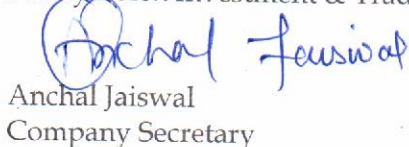 Investment & Trad
Anchal Jaiswal
Anchal Jaiswal
Company Secretary